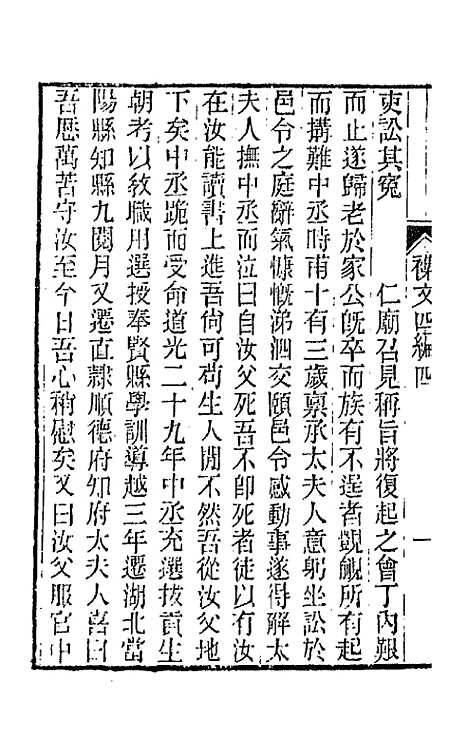 雜文四編四
一
吏訟其冤　　仁廟召見稱旨將復起之會丁內艱
而止遂歸老於家公既卒而族有不逞者覬覦所有起
而搆難中丞時甫十有三歲禀承太夫人意躬坐訟於
邑令之庭辭氣慷慨涕泗交頤邑令感動事遂得解太
夫人撫中丞而泣曰自汝父死吾不卽死者徒以有汝
在汝能讀書上進吾尙可苟生人閒不然吾從汝父地
下矣中丞跪而受命道光二十九年中丞充選拔貢生
朝考以敎職用選授奉賢縣學訓導越三年遷湖北當
陽縣知縣九閱月又遷直隸順德府知府太夫人喜曰
吾歷萬苦守汝至今日吾心稍慰矣又曰汝父服官中